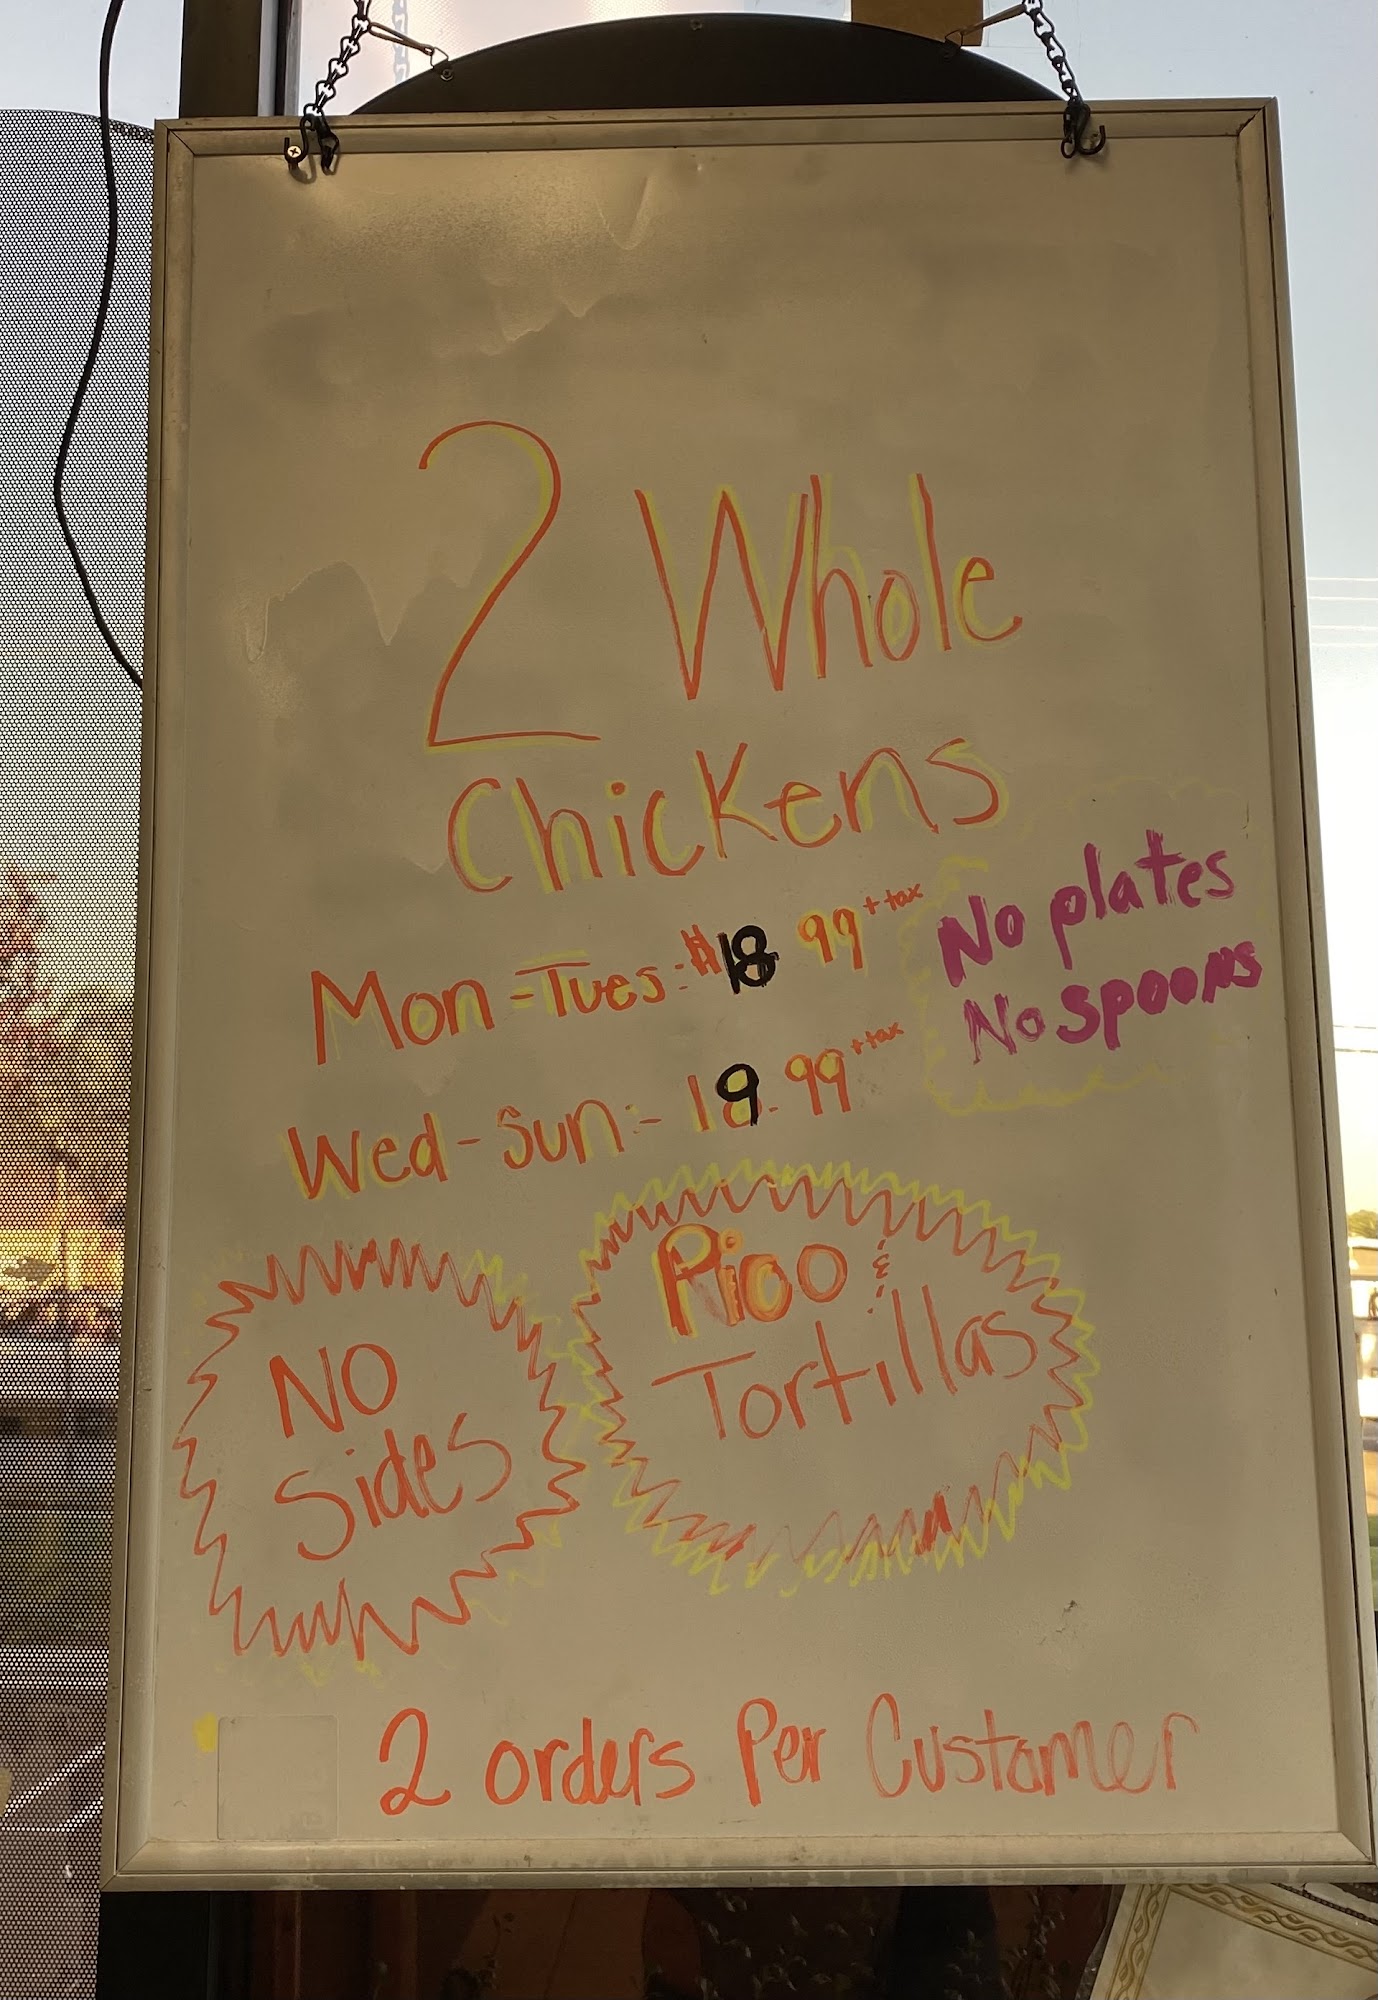 2 Whole
Chickens
Mon-Tues: $18 99 + tax
Wed-Sun:- 19.99 + tax
No plates
No spoons
NO
Sides
Pico &
Tortillas
2 orders Per Customer